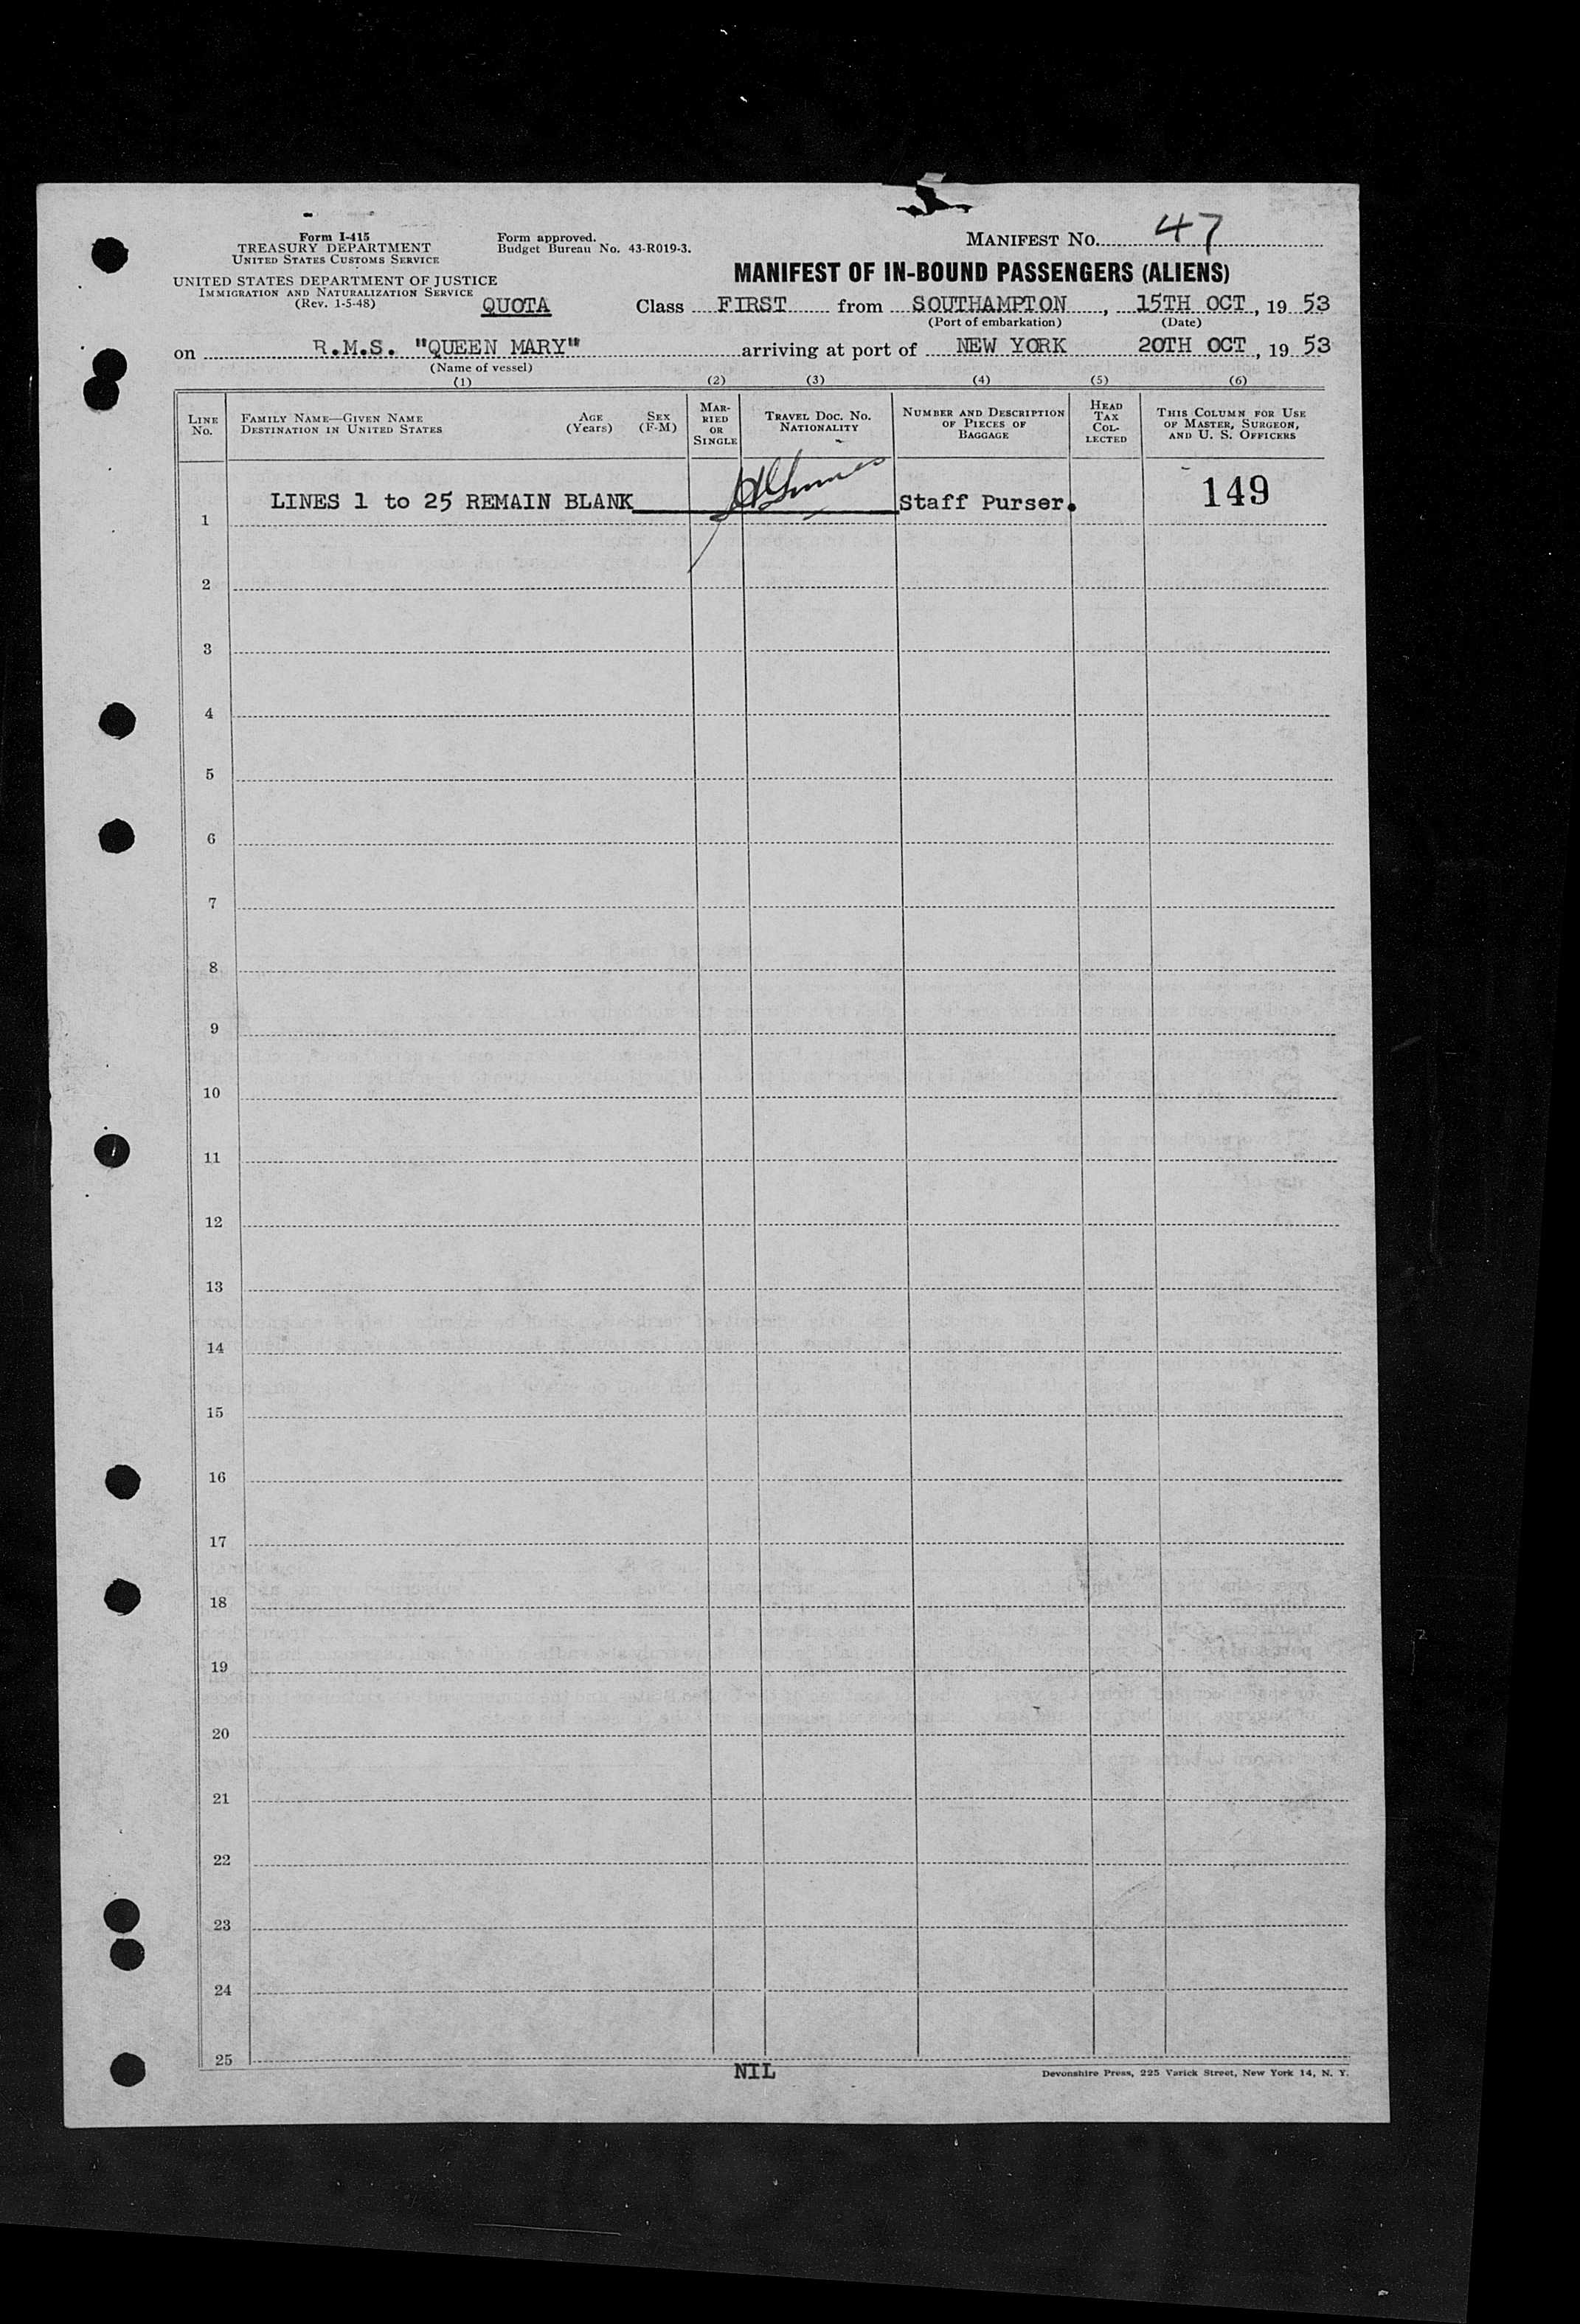 Form I-415
TREASURY DEPARTMENT
UNITED STATES CUSTOMS SERVICE
UNITED STATES DEPARTMENT OF JUSTICE
IMMIGRATION AND NATURALIZATION SERVICE
(Rev. 1-5-48)
Form approved.
Budget Bureau No. 43-R019-3.
MANIFEST No. 47
MANIFEST OF IN-BOUND PASSENGERS (ALIENS)
QUOTA Class FIRST from SOUTHAMPTON, 15TH OCT, 19 53
(Port of embarkation) (Date)
on R.M.S. "QUEEN MARY" arriving at port of NEW YORK 20TH OCT, 19 53
(Name of vessel)
(1) (2) (3) (4) (5) (6)
LINE No.
FAMILY NAME—GIVEN NAME
DESTINATION IN UNITED STATES
AGE (Years)
SEX (F-M)
MARRIED OR SINGLE
TRAVEL DOC. NO. NATIONALITY
NUMBER AND DESCRIPTION OF PIECES OF BAGGAGE
HEAD TAX COLLECTED
THIS COLUMN FOR USE OF MASTER, SURGEON, AND U. S. OFFICERS
LINES 1 to 25 REMAIN BLANK Staff Purser. 149
1
2
3
4
5
6
7
8
9
10
11
12
13
14
15
16
17
18
19
20
21
22
23
24
25
NIL
Devonshire Press, 225 Varick Street, New York 14, N. Y.